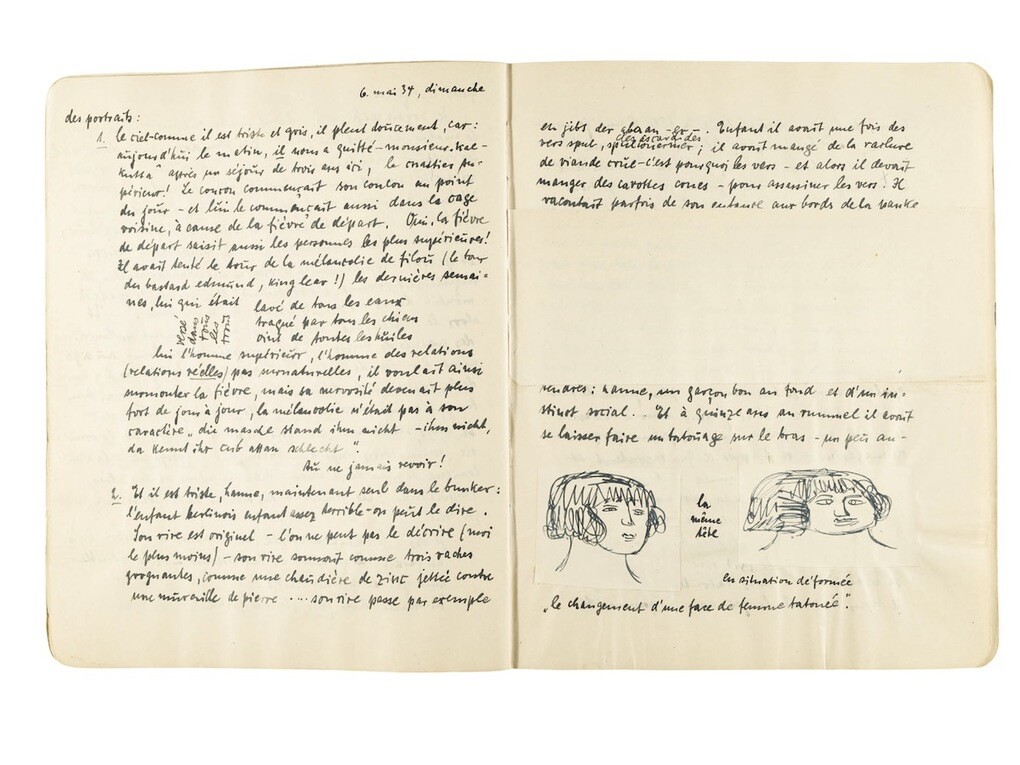 6. mai 34, dimanche
des portraits:
1. le ciel-comme il est triste et gris, il pleut doucement, car:
aujourd'hui le matin, il nous a quitté-monsieur "kal-
kutta" après un séjour de trois ans ici, le su-
périeur! Le coucou commençait son coulou au point
du jour - et lui le commençait aussi dans la cage
voisine, à cause de la fièvre de départ. Oui, la fièvre
de départ saisit aussi les personnes les plus supérieures!
Il avait tenté le tour de la mélancolie de filou (le tour
du bastard edmund, king lear!) les dernières semai-
nes, lui qui était lavé de tous les eaux
traqué par tous les chiens
oint de toutes les huiles
versé dans tous les trous
lui l'homme supérieur, l'homme des relations
(relations réelles) pas surnaturelles, il voulait ainsi
surmonter la fièvre, mais sa nervosité devenait plus
fort de jour à jour, la mélancolie n'était pas à son
caractère „die maske stand ihm nicht - ihm nicht,
da kennt ihr schlecht".
Au ne jamais revoir!
2. Et il est triste, hanne, maintenant seul dans le bunker:
l'enfant berlinois enfant assez terrible-on peut le dire.
Son rire est originel - l'on ne peut pas le décrire (moi
le plus moins) - son rire sonnait comme trois vaches
grognantes, comme une chaudière de zinc jettée contre
une muraille de pierre .... son rire passe par exemple
en jibs der - gr -. Enfant il avait une fois des
des escaroides
vers spul, spulwürmer; il avait mangé de la raclure
de viande crue-c'est pourquoi les vers - et alors il devait
manger des carottes crues - pour assassiner les vers. Il
racontait parfois de son enfance aux bords de la panke
rendres: hanne, un garçon bon au fond et d'un in-
stinct social. - Et à quinze ans au rummel il avait
se laisser faire un tatouage sur le bras - un peu au-
la
même
tête
en situation déformée
„le changement d'une face de femme tatouée".